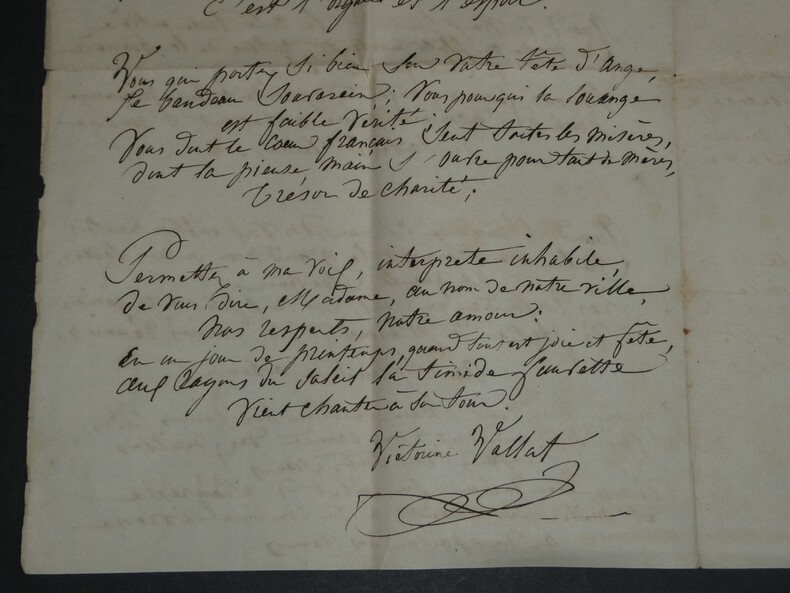 C'est l'orgueil et l'espoir.
Vous qui portez si bien sur votre tête d'Ange,
Le bandeau Souverain; Vous pour qui la louange
est faible vérité!
Vous dont le cœur français sent toutes les misères,
dont la pieuse main s'ouvre pour tant de mères,
trésor de charité;
Permettez à ma voix, interprete inhabile,
de vous dire, Madame, au nom de notre ville,
nos respects, notre amour:
En un jour de printemps, quand tout est joie et fête,
aux rayons du soleil la timide fauvette
vient chanter à son tour.
Victorine Vallat